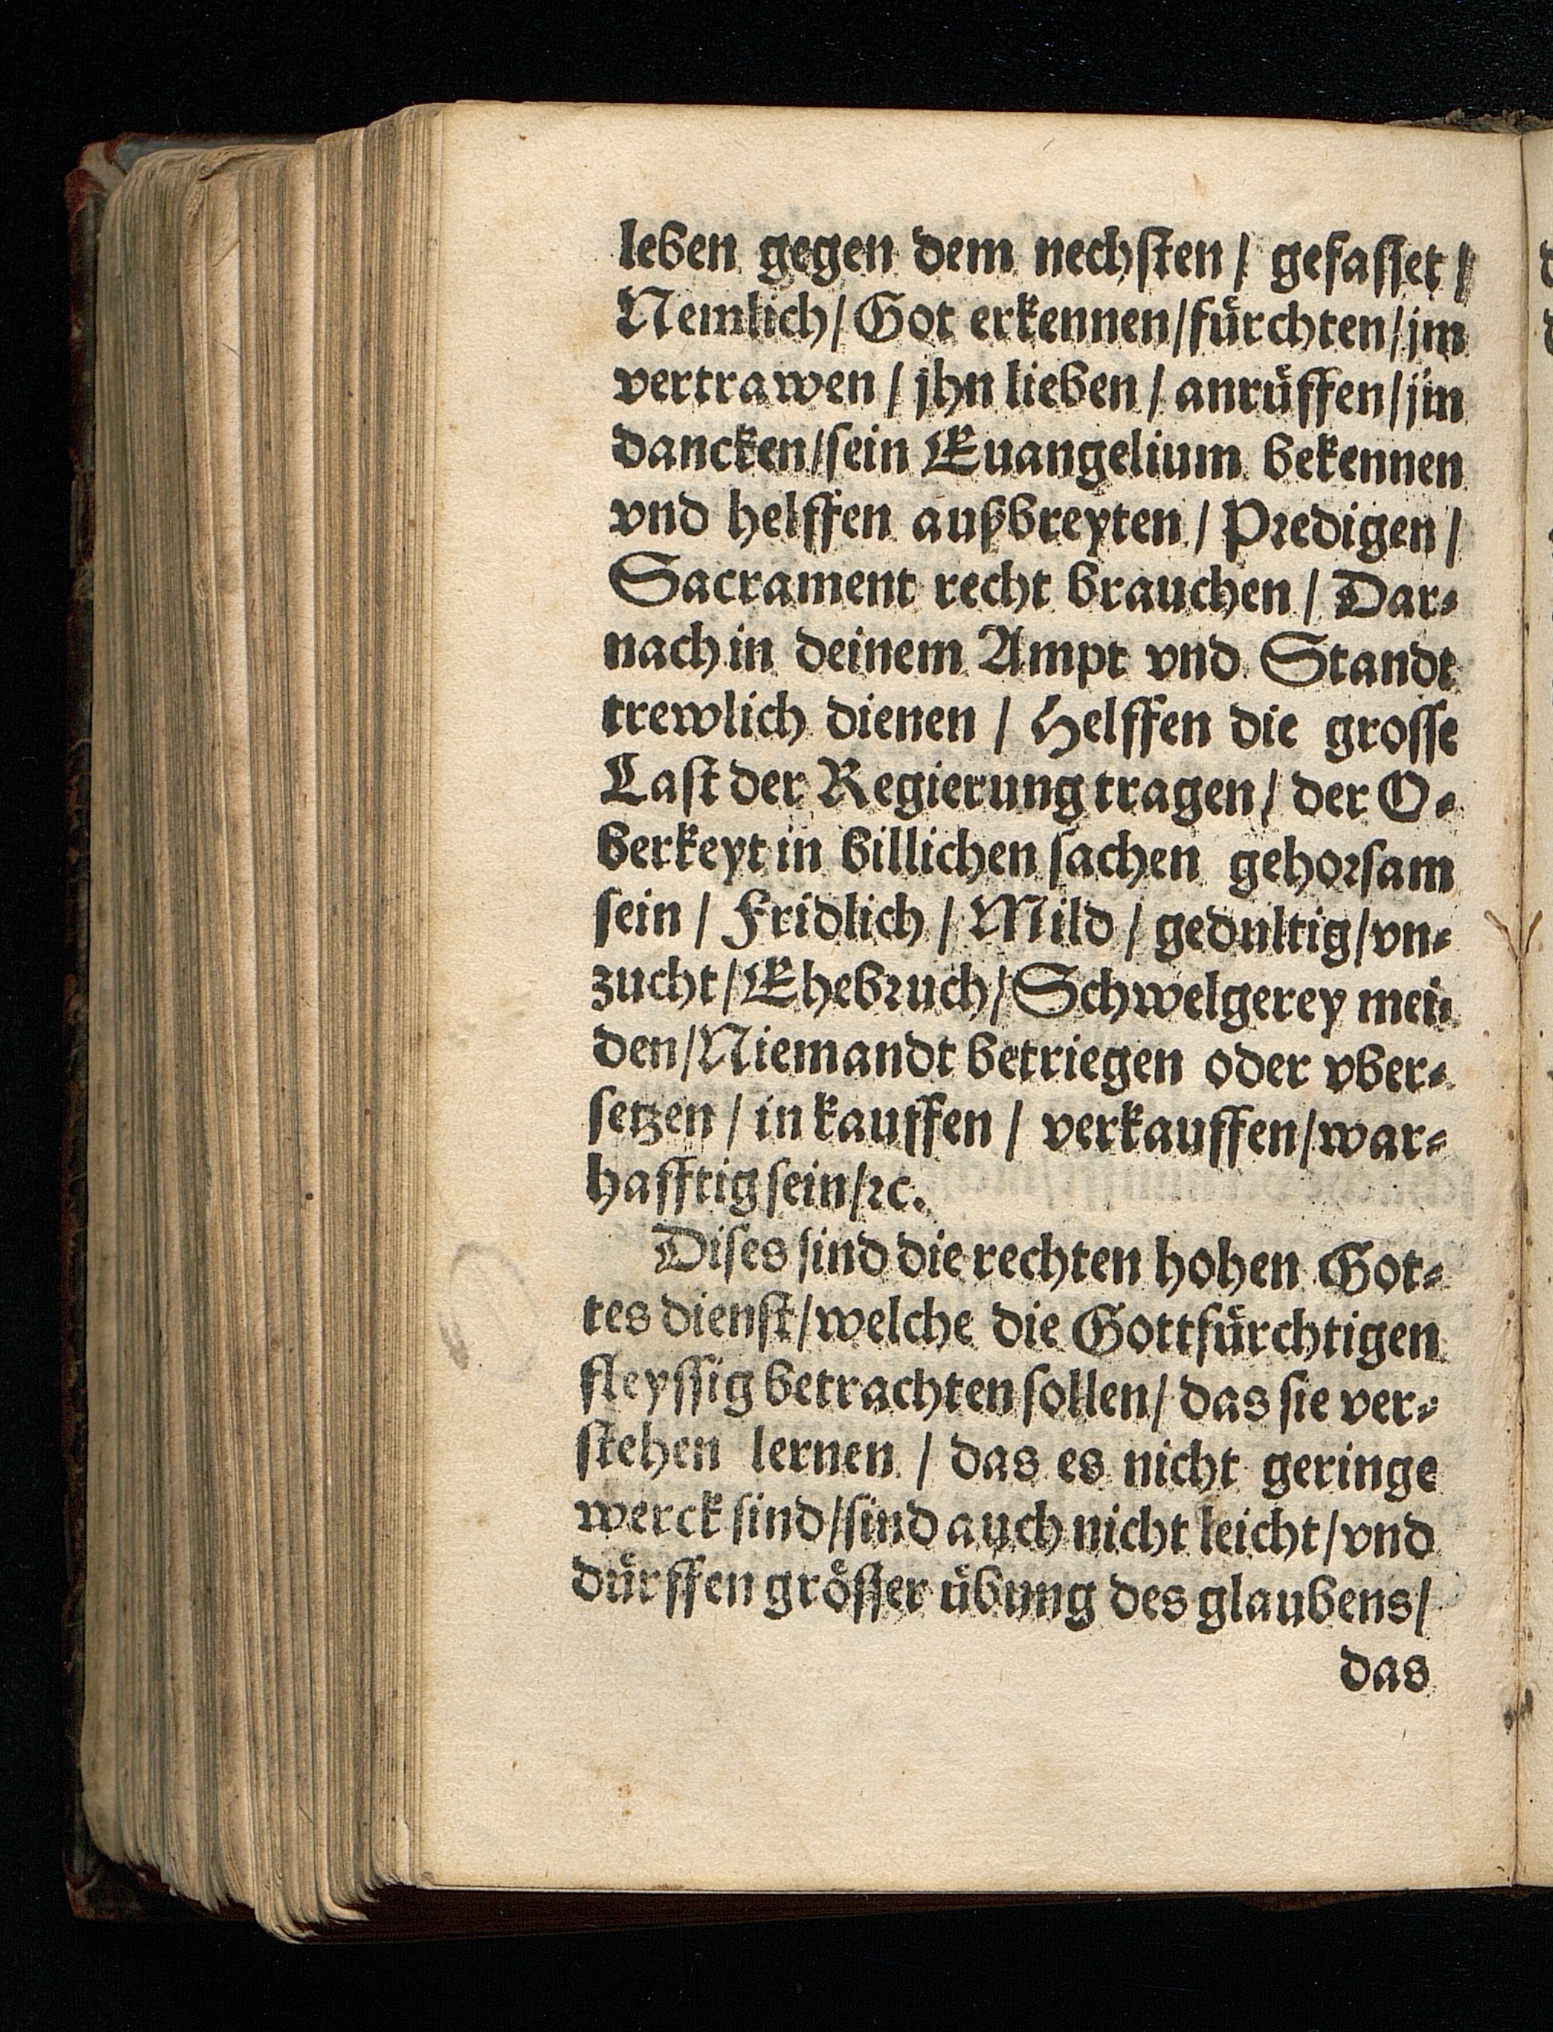 leben gegen dem nechsten / gefasset /
Nemlich / Got erkennen / fuͤrchten / jm
vertrawen / jhn lieben / anruͤffen / jm
dancken / sein Euangelium bekennen
vnd helffen außbreyten / Predigen /
Sacrament recht brauchen / Dar⸗
nach in deinem Ampt vnd Standt
trewlich dienen / Helffen die grosse
Last der Regierung tragen / der O⸗
berkeyt in billichen sachen gehorsam
sein / Fridlich / Mild / gedultig / vn⸗
zucht / Ehebruch / Schwelgerey mei⸗
den / Niemandt betriegen oder vber⸗
setzen / in kauffen / verkauffen / war⸗
hafftig sein / ꝛc.
Dises sind die rechten hohen Got⸗
tes dienst / welche die Gottfuͤrchtigen
fleyssig betrachten sollen / das sie ver⸗
stehen lernen / das es nicht geringe
werck sind / sind auch nicht leicht / vnd
duͤrffen groͤsser uͤbung des glaubens /
das